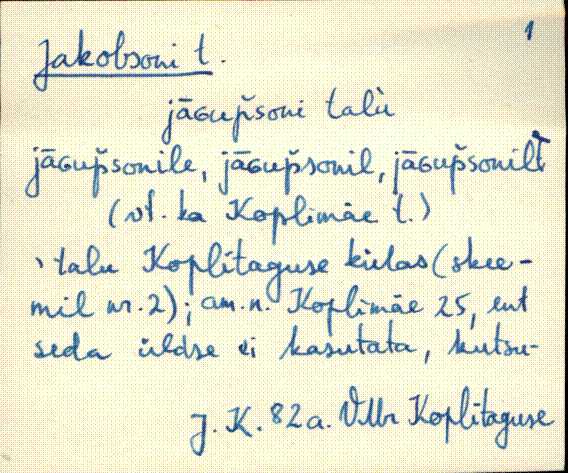 1
Jakobsoni t.
jāɢup̆soni talù
jāɢup̆sonile, jāɢup̆sonil, jāɢup̆sonilt
(vt. ka Koplimäe t.)
talu Koplitaguse külas (skee-
mil nr. 2); am. n. Koplimäe 25, ent
seda üldse ei kasutata, kutsu-
J. K. 82a. VMr Koplitaguse